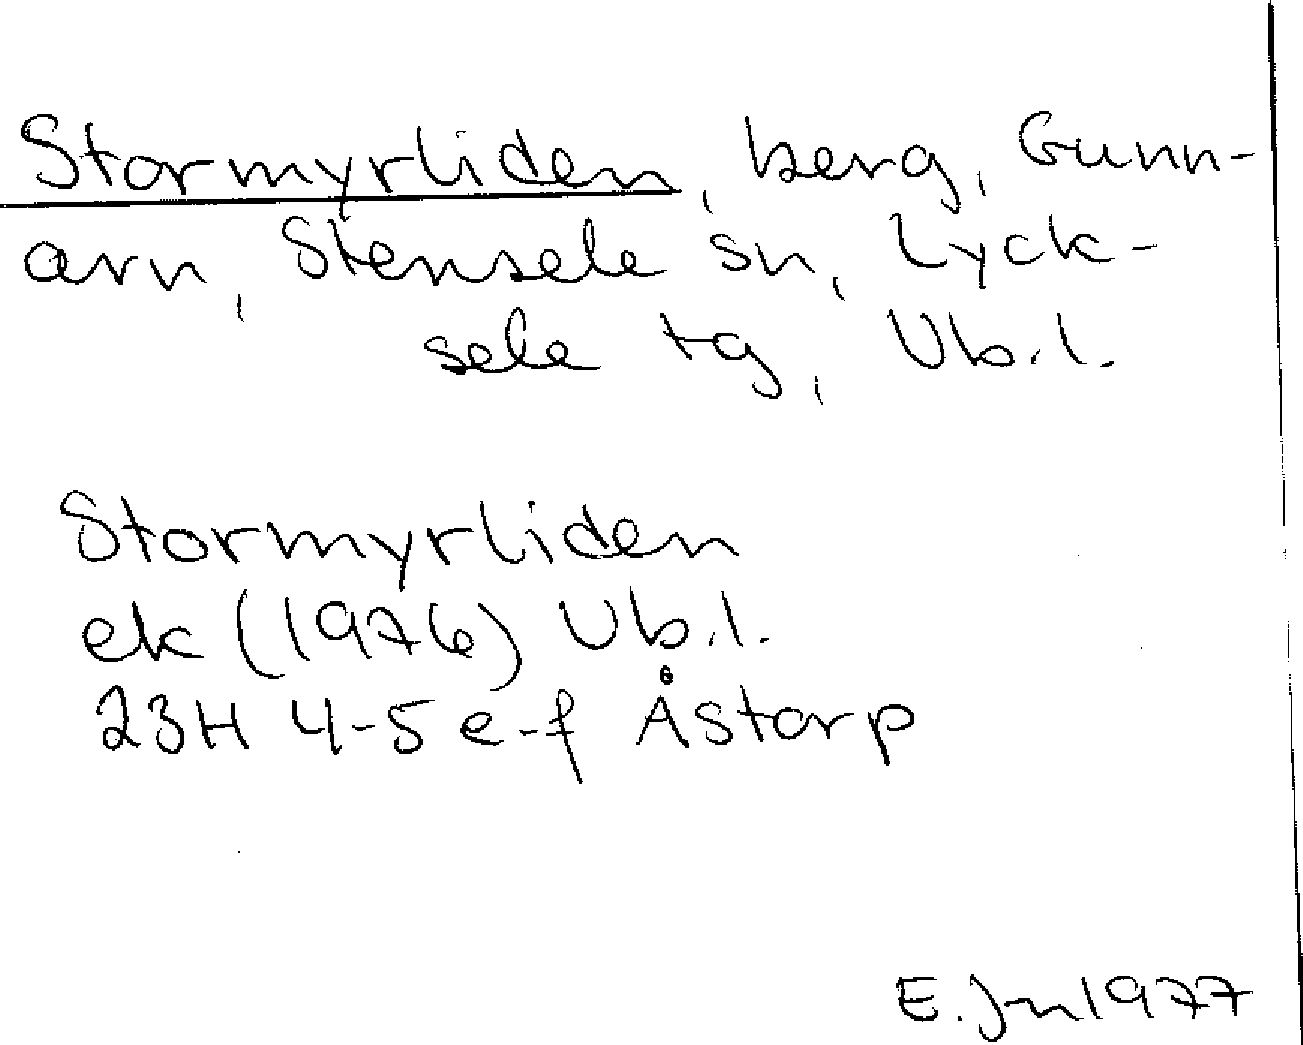 Stormyrliden, berg, Gunn-
arn, Stensele sn, Lyck-
sele tg, Vb.l.
Stormyrliden
ek (1976) Vb.l.
23H 4-5 e-f Åstorp
E. Jn 1977